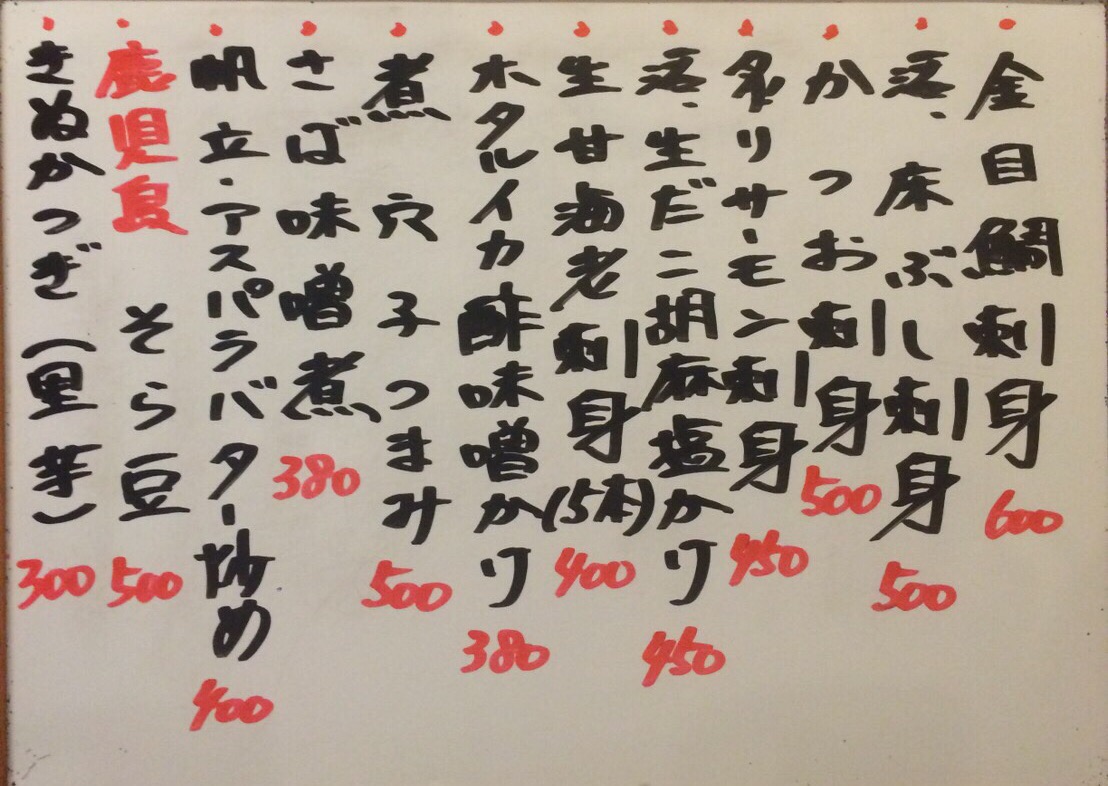 金目鯛刺身 600
活、床ぶし刺身 500
かつお刺身 500
炙りサーモン刺身 450
活、生だこ胡麻塩かけ 450
生甘海老刺身(5本) 400
ホタルイカ酢味噌かけ 380
煮穴子つまみ 500
さば味噌煮 380
帆立・アスパラバター炒め 400
鹿児島 そら豆 500
きぬかつぎ(里芋) 300